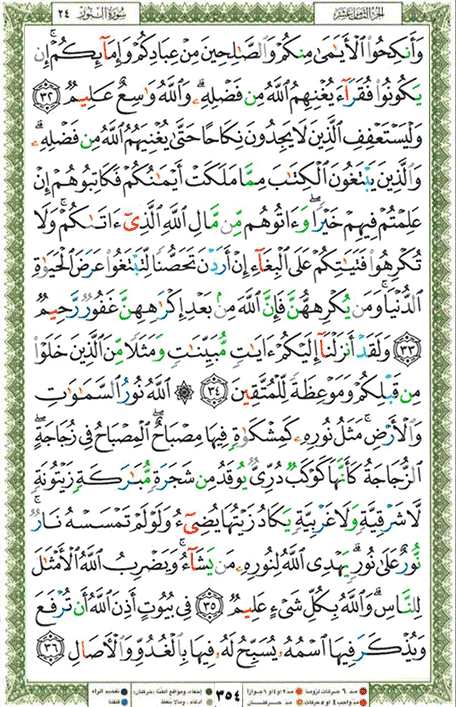 الجزء الثامن عشر
سورة النور ٢٤
وَأَنكِحُوا۟ ٱلْأَيَـٰمَىٰ مِنكُمْ وَٱلصَّـٰلِحِينَ مِنْ عِبَادِكُمْ وَإِمَآئِكُمْ ۚ إِن
يَكُونُوا۟ فُقَرَآءَ يُغْنِهِمُ ٱللَّهُ مِن فَضْلِهِۦ ۗ وَٱللَّهُ وَٰسِعٌ عَلِيمٌ ٣٢
وَلْيَسْتَعْفِفِ ٱلَّذِينَ لَا يَجِدُونَ نِكَاحًا حَتَّىٰ يُغْنِيَهُمُ ٱللَّهُ مِن فَضْلِهِۦ ۗ
وَٱلَّذِينَ يَبْتَغُونَ ٱلْكِتَـٰبَ مِمَّا مَلَكَتْ أَيْمَـٰنُكُمْ فَكَاتِبُوهُمْ إِنْ
عَلِمْتُمْ فِيهِمْ خَيْرًا ۖ وَءَاتُوهُم مِّن مَّالِ ٱللَّهِ ٱلَّذِىٓ ءَاتَىٰكُمْ ۚ وَلَا
تُكْرِهُوا۟ فَتَيَـٰتِكُمْ عَلَى ٱلْبِغَآءِ إِنْ أَرَدْنَ تَحَصُّنًا لِّتَبْتَغُوا۟ عَرَضَ ٱلْحَيَوٰةِ
ٱلدُّنْيَا ۚ وَمَن يُكْرِههُّنَّ فَإِنَّ ٱللَّهَ مِنۢ بَعْدِ إِكْرَٰهِهِنَّ غَفُورٌ رَّحِيمٌ
٣٣ وَلَقَدْ أَنزَلْنَآ إِلَيْكُمْ ءَايَـٰتٍ مُّبَيِّنَـٰتٍ وَمَثَلًا مِّنَ ٱلَّذِينَ خَلَوْا۟
مِن قَبْلِكُمْ وَمَوْعِظَةً لِّلْمُتَّقِينَ ٣٤ ۞ ٱللَّهُ نُورُ ٱلسَّمَـٰوَٰتِ
وَٱلْأَرْضِ ۚ مَثَلُ نُورِهِۦ كَمِشْكَوٰةٍ فِيهَا مِصْبَاحٌ ۖ ٱلْمِصْبَاحُ فِى زُجَاجَةٍ ۖ
ٱلزُّجَاجَةُ كَأَنَّهَا كَوْكَبٌ دُرِّىٌّ يُوقَدُ مِن شَجَرَةٍ مُّبَـٰرَكَةٍ زَيْتُونَةٍ
لَّا شَرْقِيَّةٍ وَلَا غَرْبِيَّةٍ يَكَادُ زَيْتُهَا يُضِىٓءُ وَلَوْ لَمْ تَمْسَسْهُ نَارٌ ۚ
نُّورٌ عَلَىٰ نُورٍ ۗ يَهْدِى ٱللَّهُ لِنُورِهِۦ مَن يَشَآءُ ۚ وَيَضْرِبُ ٱللَّهُ ٱلْأَمْثَـٰلَ
لِلنَّاسِ ۗ وَٱللَّهُ بِكُلِّ شَىْءٍ عَلِيمٌ ٣٥ فِى بُيُوتٍ أَذِنَ ٱللَّهُ أَن تُرْفَعَ
وَيُذْكَرَ فِيهَا ٱسْمُهُۥ يُسَبِّحُ لَهُۥ فِيهَا بِٱلْغُدُوِّ وَٱلْـَٔاصَالِ ٣٦
٣٥٤